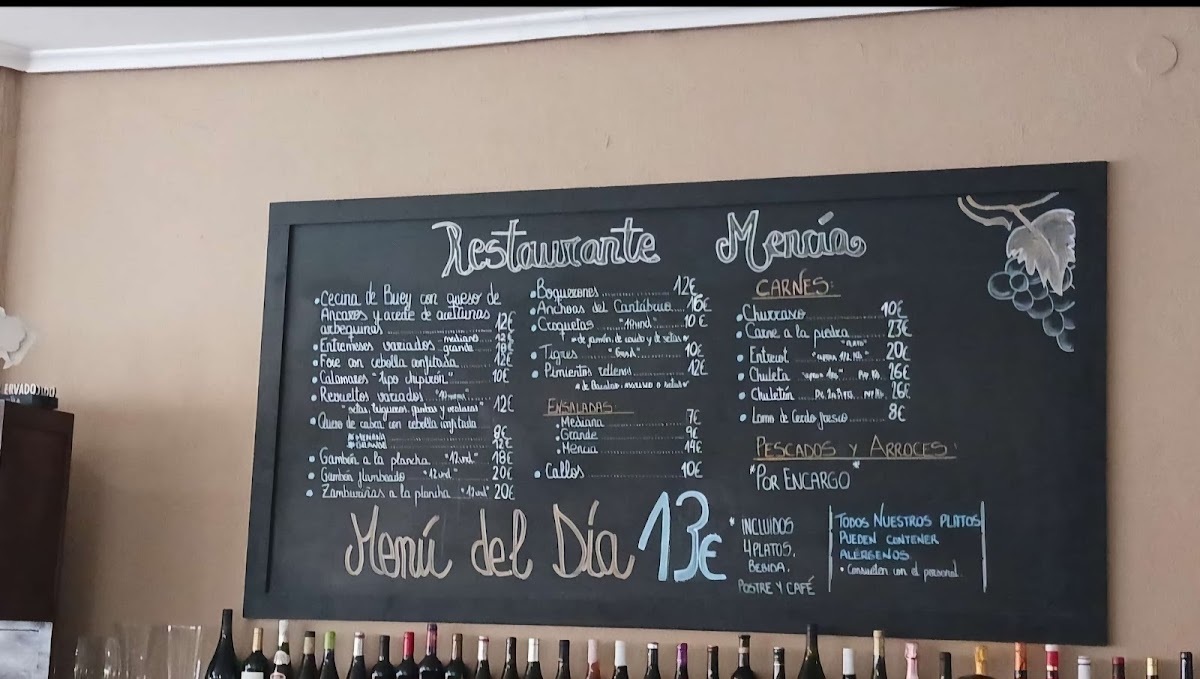 Restaurante Mencía
• Cecina de Buey con queso de
Ancares y aceite de aceitunas
arbequinas 12€
• Entremeses variados mediano 12€
grande 18€
• Foie con cebolla confitada 12€
• Calamares "tipo chipirón" 10€
• Revueltos variados 12€
• Queso de cabra con cebolla confitada
MEDIANA 8€
GRANDE 12€
• Gambón a la plancha "12 und." 18€
• Gambón flambeado "12 und." 20€
• Zamburiñas a la plancha "12 und" 20€
• Boquerones 12€
• Anchoas del Cantábrico 16€
• Croquetas "18 und." 10€
• Tigres 10€
• Pimientos rellenos 12€
ENSALADAS
• Mediana 7€
• Grande 9€
• Mencia 14€
• Callos 10€
CARNES:
• Churrasco 10€
• Carne a la piedra 23€
• Entrecot 20€
• Chuleta 26€
• Chuletón 26€
• Lomo de Cerdo fresco 8€
PESCADOS Y ARROCES:
"POR ENCARGO"
Menú del Día 13€
* INCLUIDOS
4 PLATOS,
BEBIDA,
POSTRE Y CAFÉ
TODOS NUESTROS PLATOS
PUEDEN CONTENER
ALÉRGENOS
• Consulten con el personal.
ERVADO